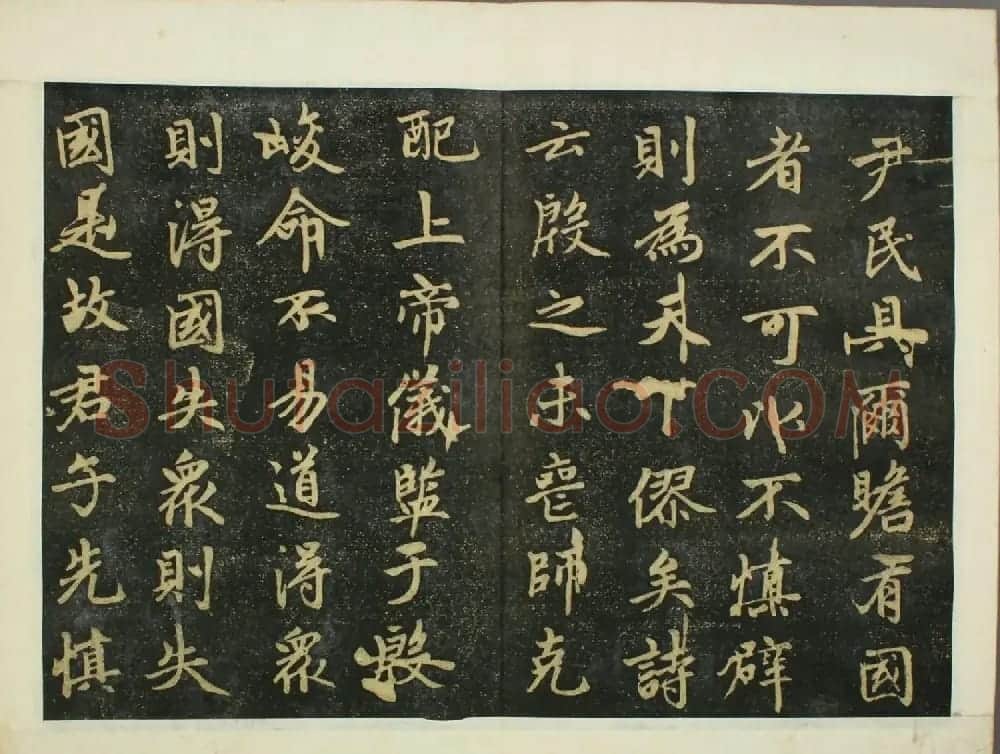 尹民具爾瞻有國
者不可以不慎辟
則為天下僇矣詩
云殷之未喪師克
配上帝儀監于殷
峻命不易道得眾
則得國失眾則失
國是故君子先慎
Shufaziliao.COM